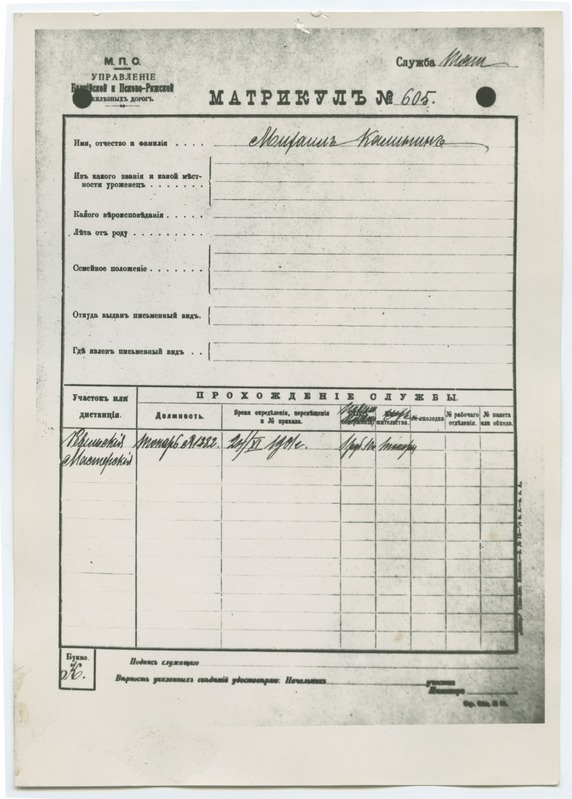 М. П. О.
УПРАВЛЕНІЕ
Балтійской и Псково-Рижской
желѣзныхъ дорогъ.
Служба
МАТРИКУЛЪ № 605.
Имя, отчество и фамилія . . . . Михаилъ Калининъ
Изъ какого званія и какой мѣст-
ности уроженец . . . . . . .
Какого вѣроисповѣданія . . . . .
Лѣта отъ роду . . . . . . . . .
Семейное положеніе . . . . . . .
Откуда выданъ письменный видъ.
Гдѣ явленъ письменный видъ . .
Участокъ или дистанція.
ПРОХОЖДЕНІЕ СЛУЖБЫ.
Должность.
Время опредѣленія, перемѣщенія и № приказа.
№ околодка
№ рабочаго отдѣленія.
№ пакета или обхода.
Ревельскія токарь № 1332 20/XI 1901г.
Мастерскія
Буква
К.
Подпись служащаго
Вѣрность указанныхъ свѣдѣній удостовѣряю: Начальникъ участка